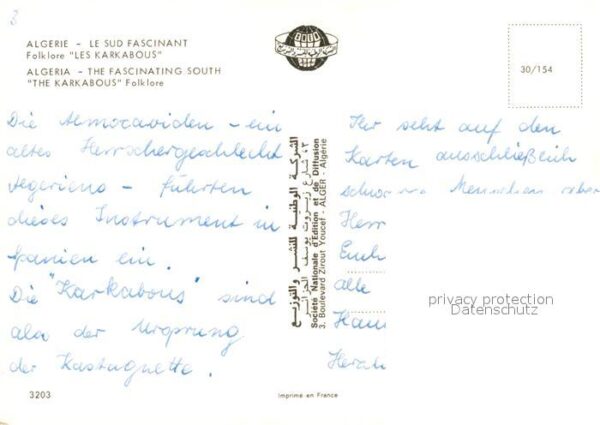 3
ALGERIE - LE SUD FASCINANT
Folklore "LES KARKABOUS"
ALGERIA - THE FASCINATING SOUTH
"THE KARKABOUS" Folklore
Die Almoraviden - ein
altes Herrschergeschlecht
Algeriens - führten
dieses Instrument in
Spanien ein.
Die "Karkabous" sind
also der Ursprung
der Kastagnette.
3203
SNED
الشركة الوطنية للنشر والتوزيع
٣، شارع زيروت يوسف الجزائر
Société Nationale d'Edition et de Diffusion
3, Boulevard Zirout Youcef - ALGER - Algérie
Imprimé en France
30/154
Ihr seht auf den
Karten ausschließlich
Menschen aber
Herr
alle
privacy protection
Datenschutz